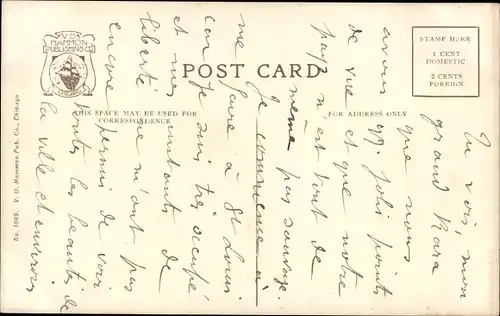 V.O. HAMMON
PUBLISHING CO.
TRADE MARK
POST CARD
THIS SPACE MAY BE USED FOR
CORRESPONDENCE
FOR ADDRESS ONLY
STAMP HERE
1 CENT
DOMESTIC
2 CENTS
FOREIGN
No. 1082. V. O. Hammon Pub. Co., Chicago
Tu vois, mon
grand
que nous
avons qq. jolis points
de vue et que notre
pays n'est point de
même pas sauvage.
Je commence à
me faire à St Louis
car je suis très occupé
et mes instants de
liberté ne m'ont pas
encore permis de voir
toutes les beautés de
la ville et environs